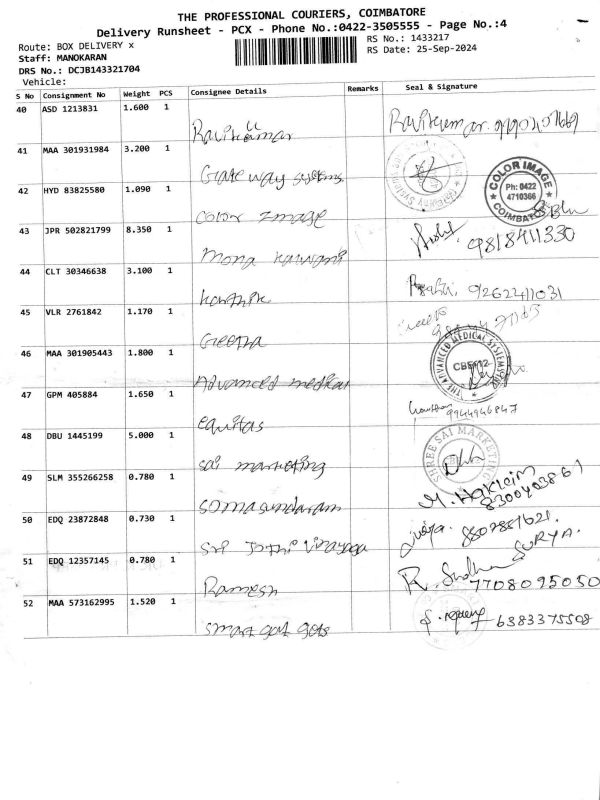 THE PROFESSIONAL COURIERS, COIMBATORE
Delivery Runsheet - PCX - Phone No.:0422-3505555 - Page No.:4
Route: BOX DELIVERY x
RS No.: 1433217
Staff: MANOKARAN
RS Date: 25-Sep-2024
DRS No.: DCJB143321704
Vehicle:
S No Consignment No Weight PCS Consignee Details Remarks Seal & Signature
40 ASD 1213831 1.600 1
Ravikumar Ravikumar.
41 MAA 301931984 3.200 1
Gate way systems
42 HYD 83825580 1.090 1
COLOR IMAGE
Ph: 0422
4710366
COIMBATORE
color Image
43 JPR 502821799 8.350 1
9818411330
Mona
44 CLT 30346638 3.100 1
karthik 9262241031
45 VLR 2761842 1.170 1
Geetha
46 MAA 301905443 1.800 1
THE ADVANCED MEDICAL SYSTEMS
Advanced medical
47 GPM 405884 1.650 1
equitas 9944946847
48 DBU 1445199 5.000 1
SHREE SAI MARKETING
sai marketing
49 SLM 355266258 0.780 1
somasundaram 8300403861
50 EDQ 23872848 0.730 1
Sri
SURYA.
51 EDQ 12357145 0.780 1
Ramesh R. Sudha 7708095050
52 MAA 573162995 1.520 1
smart 6383375508